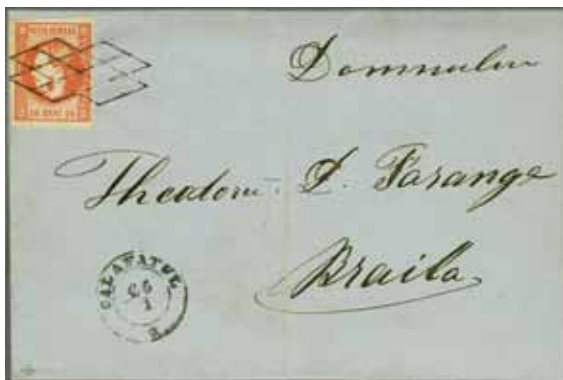 Domnului
Theodoru D. Farange
Braila
CALAFATUL